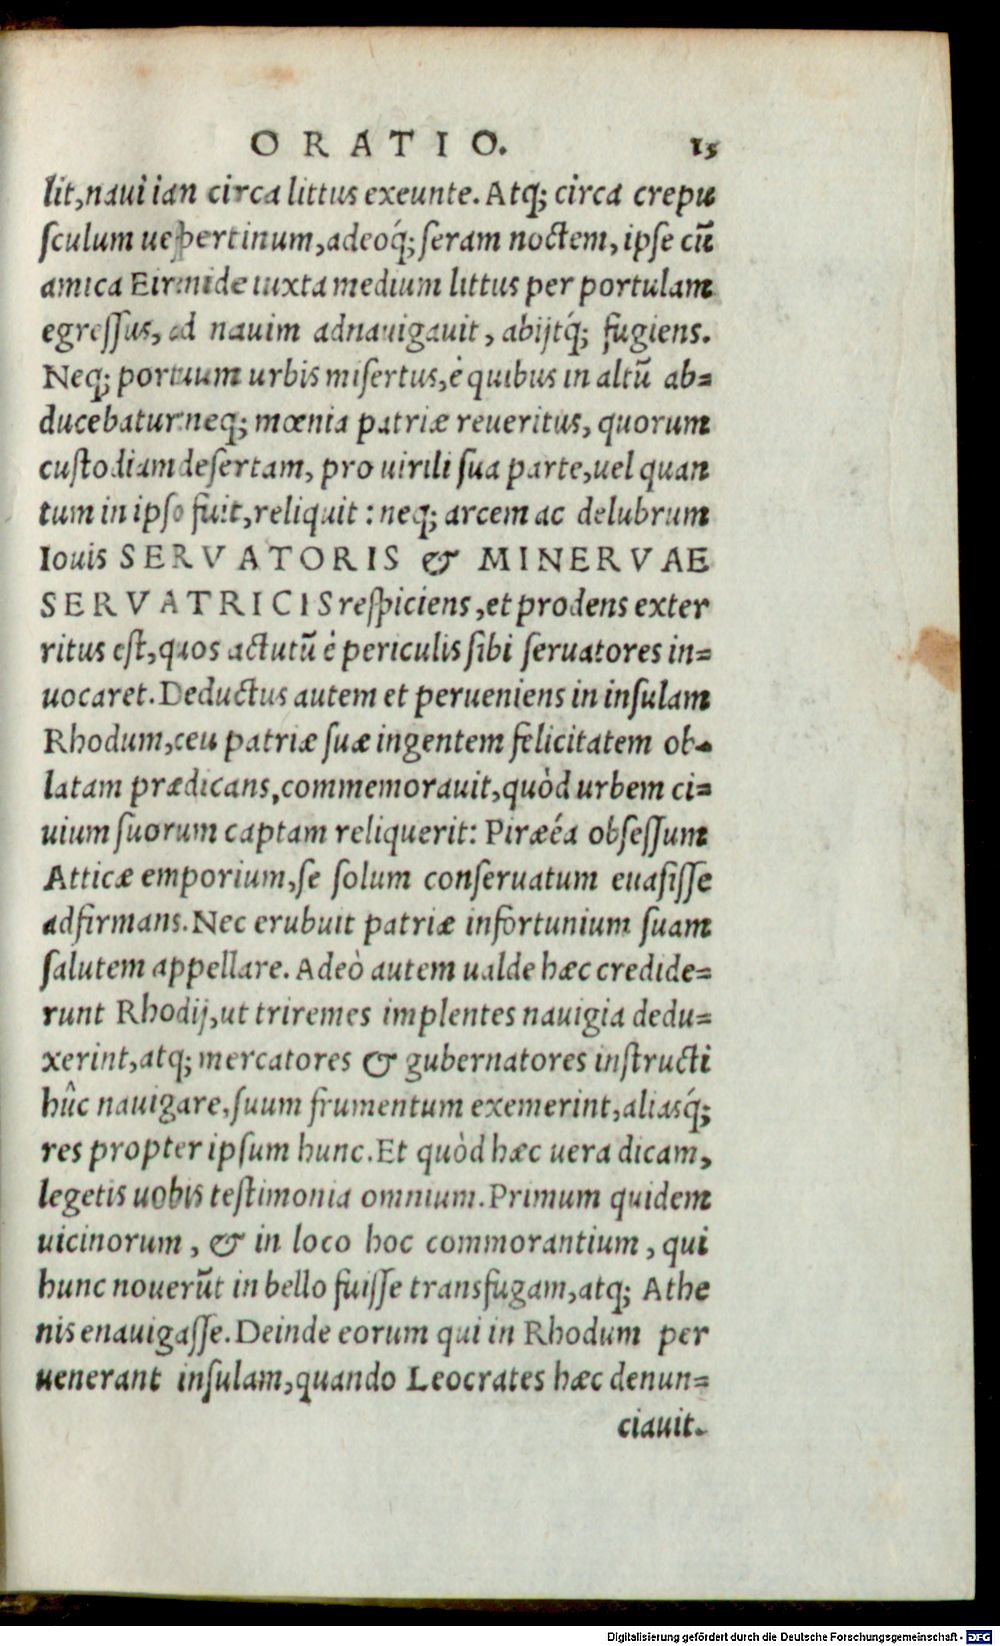 ORATIO. 15
lit, naui ian circa littus exeunte. Atq; circa crepu
sculum uespertinum, adeoq́; seram noctem, ipse cū
amica Eirmide iuxta medium littus per portulam
egressus, ad nauim adnauigauit, abijtq́; fugiens.
Neq; portuum urbis misertus, è quibus in altū ab=
ducebatur: neq; mœnia patriæ reueritus, quorum
custodiam desertam, pro uirili sua parte, uel quan
tum in ipso fuit, reliquit: neq; arcem ac delubrum
Iouis SERVATORIS & MINERVAE
SERVATRICIS respiciens, et prodens exter
ritus est, quos actutū è periculis sibi seruatores in=
uocaret. Deductus autem et perueniens in insulam
Rhodum, ceu patriæ suæ ingentem felicitatem ob=
latam prædicans, commemorauit, quòd urbem ci=
uium suorum captam reliquerit: Piræéa obsessum
Atticæ emporium, se solum conseruatum euasisse
adfirmans. Nec erubuit patriæ infortunium suam
salutem appellare. Adeò autem ualde hæc credide=
runt Rhodij, ut triremes implentes nauigia dedu=
xerint, atq; mercatores & gubernatores instructi
hûc nauigare, suum frumentum exemerint, aliasq́;
res propter ipsum hunc. Et quòd hæc uera dicam,
legetis uobis testimonia omnium. Primum quidem
uicinorum, & in loco hoc commorantium, qui
hunc nouerūt in bello fuisse transfugam, atq; Athe
nis enauigasse. Deinde eorum qui in Rhodum per
uenerant insulam, quando Leocrates hæc denun=
ciauit.
Digitalisierung gefördert durch die Deutsche Forschungsgemeinschaft - DFG